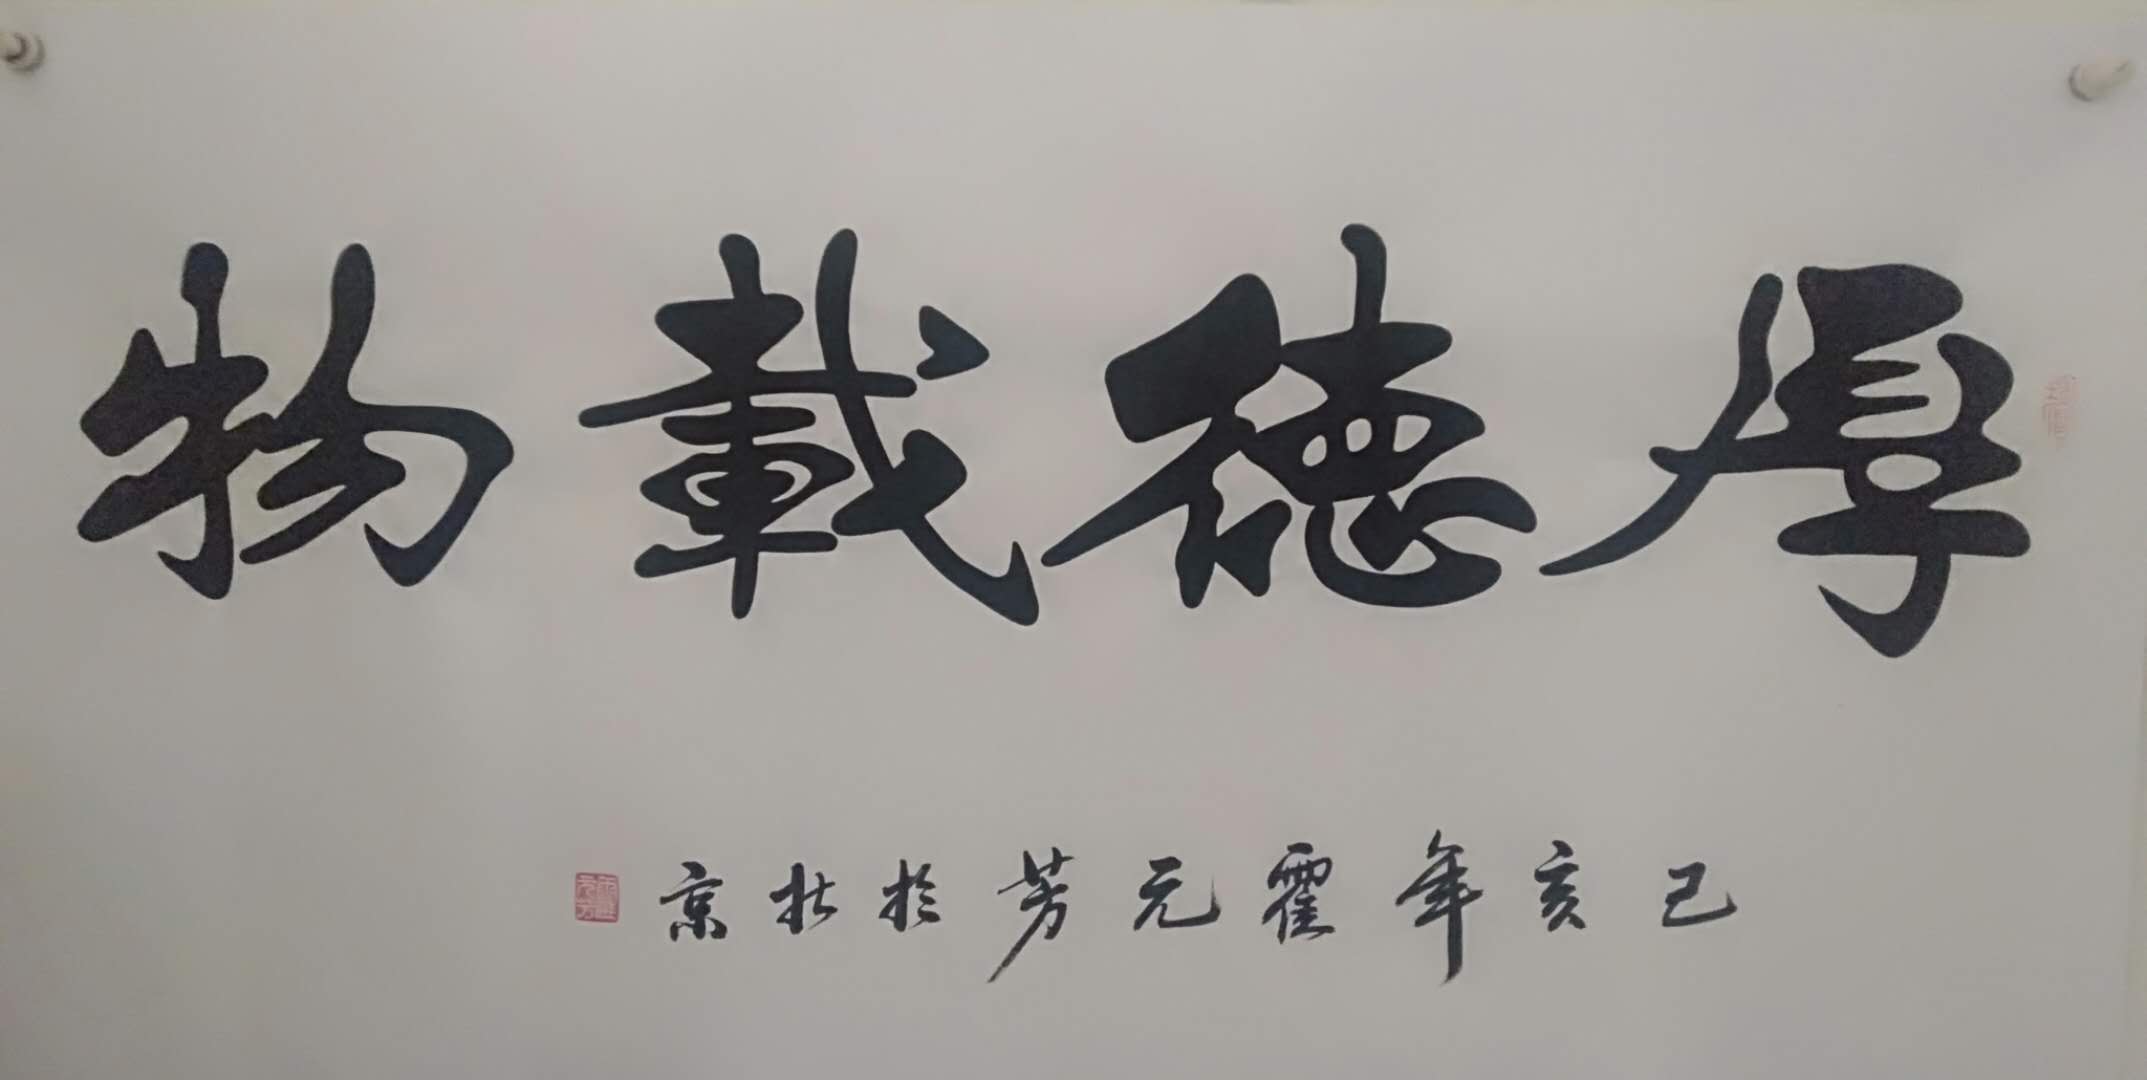 厚德載物
己亥年霍元芳於北京